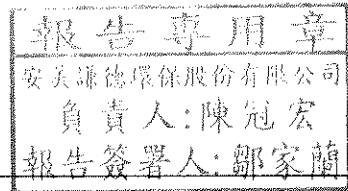 報告專用章
安美謙德環保股份有限公司
負責人：陳冠宏
報告簽署人：鄒家蘭